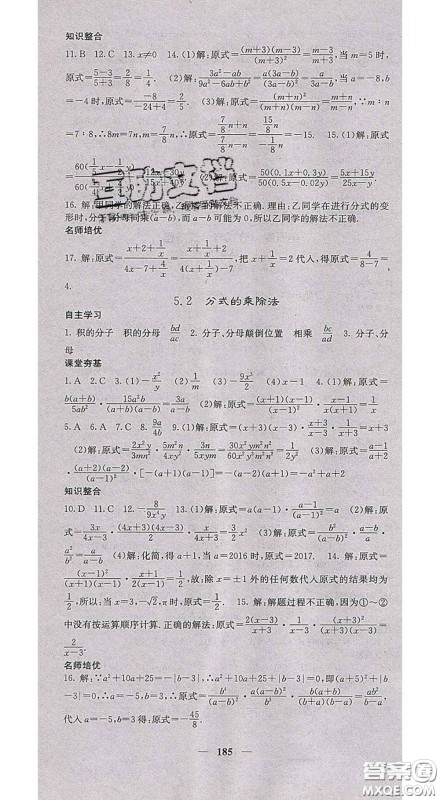 知识整合
11. B 12. C 13. x≠0 14. (1)解:原式=(m+3)(m-3)/(m+3)²=(m-3)/(m+3),当 m=5 时,
原式=(5-3)/(5+3)=2/8=1/4. (2)解:原式=(3a²-ab)/(9a²-6ab+b²)=a(3a-b)/(3a-b)²=a/(3a-b),当 a=-8,b
=-4 时,原式=-8/(-24+4)=2/5. (3)解:原式=(m+n)²/((m+n)(m-n))=(m+n)/(m-n),∵m:n
=7:8,∴8m=7n,m=7/8n,∴原式=(7/8n+n)/(7/8n-n)=-15. 15.
50(0.1x+0.3y)/50(0.5x-0.02y)=(5x+15y)/(25x-y).
16. 解:甲同学的解法正确,乙同学的解法不正确. 理由:乙同学在进行分式的变
形时,分子、分母同乘(a-b),而 a-b 可能为 0,所以乙同学的解法不正确.
名师培优
17. 解:原式=(x+2+1/x)/(4x-7+4/x)=(x+1/x+2)/(4(x+1/x)-7),把 x+1/x=2 代入,得原式=4/(8-7)=
4.
5.2 分式的乘除法
自主学习
1. 积的分子 积的分母 bd/ac 2. 分子、分母颠倒位置 相乘 bc/ad 3. 分子、分
母
课堂夯基
1. A 2. C 3. (1)-x²/y (2)1/a (3)-9x³/2 (4)x-1 4. (1)解:原式=
b(a+b)/5ab²·15a²b/((a+b)(a-b))=3a/(a-b). (2)解:原式=(x+1)(x-1)/(x-1)²·x(x-1)/(x+1)=x.
5. A 6. A 7. B 8. 9a/4b 9. (1)解:原式=(x-1)/x·2x/((x+1)(x-1))=2/(x+1).
(2)解:原式=2x²y/3m²n·5m²n/4xy²·3n/5xym=30x²ym²n²/60x²y³m³n=1/2 (3)解:原式=(a-1)/(a+2)
·(a+2)(a-2)/(a-1)²·[-(a+1)(a-1)]=-a²+a+2
知识整合
10. D 11. C 12. -8/9x⁴ 13. (1)解:原式=(a-1)/a·a/(a-1)²=1/(a-1). (2)解:
原式=3x/(4x-3)·(4x+3)(4x-3)/3·x/(4x+3)=x². (3)解:原式=a(a-b)/(a-b)²·(a-b)/a·
a²/(a-b)=a²/(a-b). (4)解:化简,得 a+1,当 a=2016 时,原式=2017. 14. 解:原式
=(x-1)²/((x+1)(x-1))·(x+1)/(x-1)·1/2=1/2,故:除 x=±1 外的任何数代入原式的结果均为
1/2,所以:当 x=3,-√2,π 时,原式=1/2. 15. 解:解题过程不正确,因为①~②
中没有按运算顺序计算. 正确的解法:原式=2(x-3)/(x-3)²·1/(x+3)·(x+3)=
2/(x-3).
名师培优
16. 解:∵a²+10a+25=-|b-3|,∴a²+10a+25+|b-3|=0,即(a+5)²+|b
-3|=0,∴a=-5,b=3,∵原式=b²/(a-b)·(a-b)²/((a+b)(a-b))·(a+b)/ab²·a²b=ab/(a-b),
代入 a=-5,b=3 得:原式=45/8.
· 185 ·
答案圈
MXQE.COM